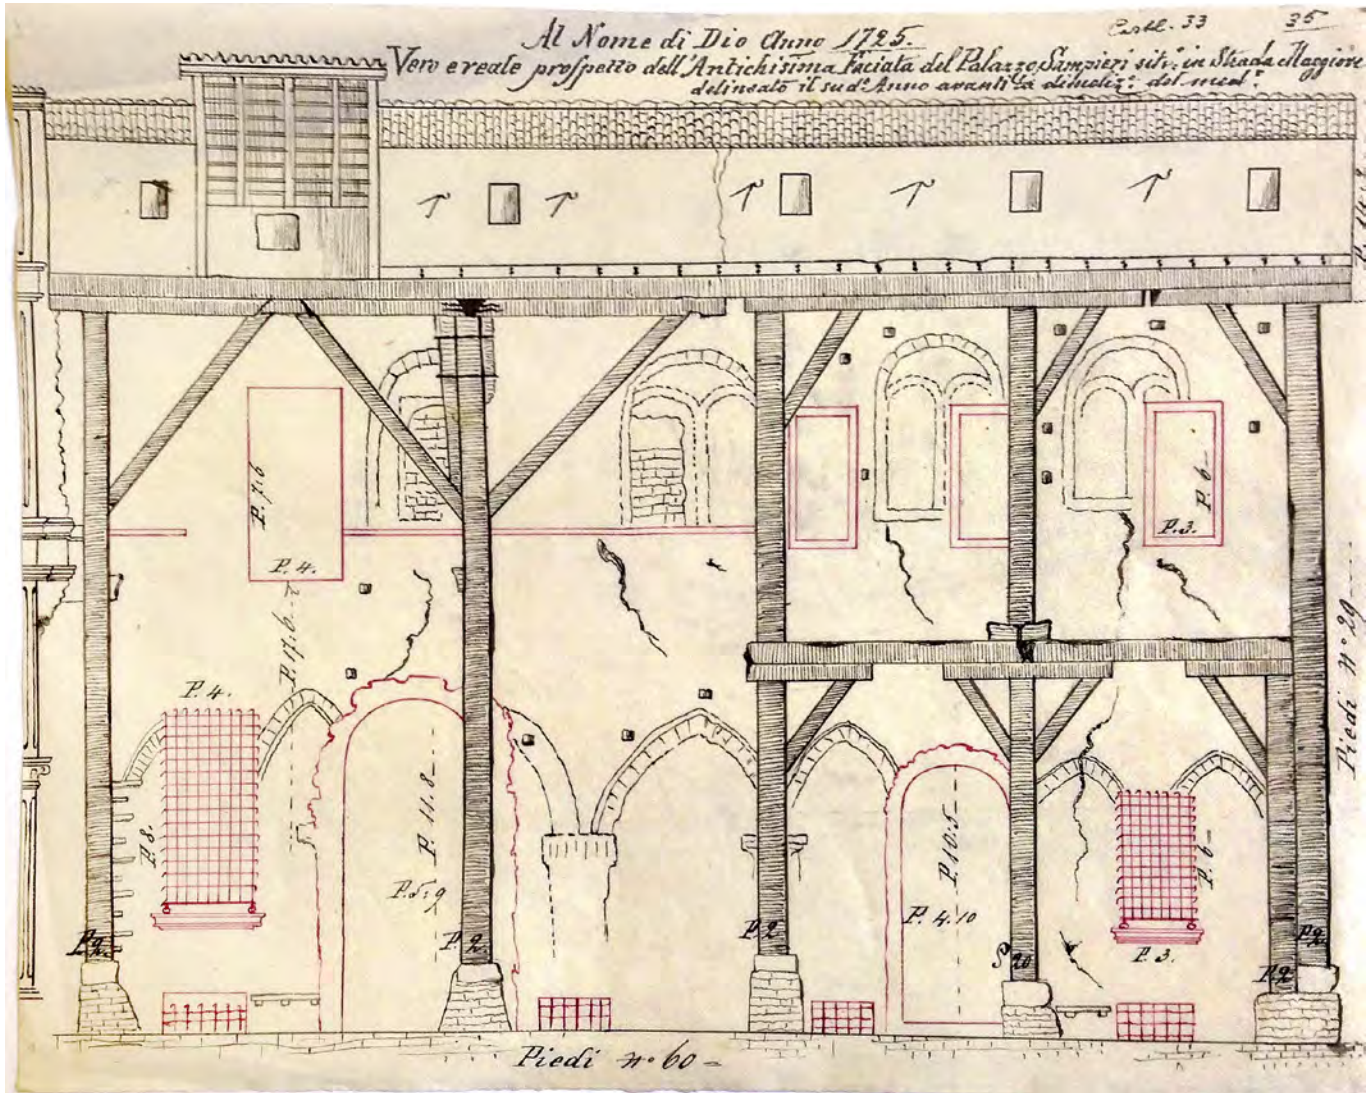 Al Nome di Dio Anno 1725.
Cartl. 33
35
Vero e reale prospetto dell'Antichisima Faciata del Palazzo Sampieri sitº: in Strada Maggiore
delineato il sudº: Anno avanti la del medº:
P. 7:6
P. 4.
P. 17:6
P. 6
P. 3.
P. 4.
P. 8.
P. 11. 8
P. 5:9
P. 10:5
P. 4. 10
P. 6
P. 3.
P. 2.
P. 2
P. 2
P. 2
P. 2
Piedi nº 29
Piedi nº 60